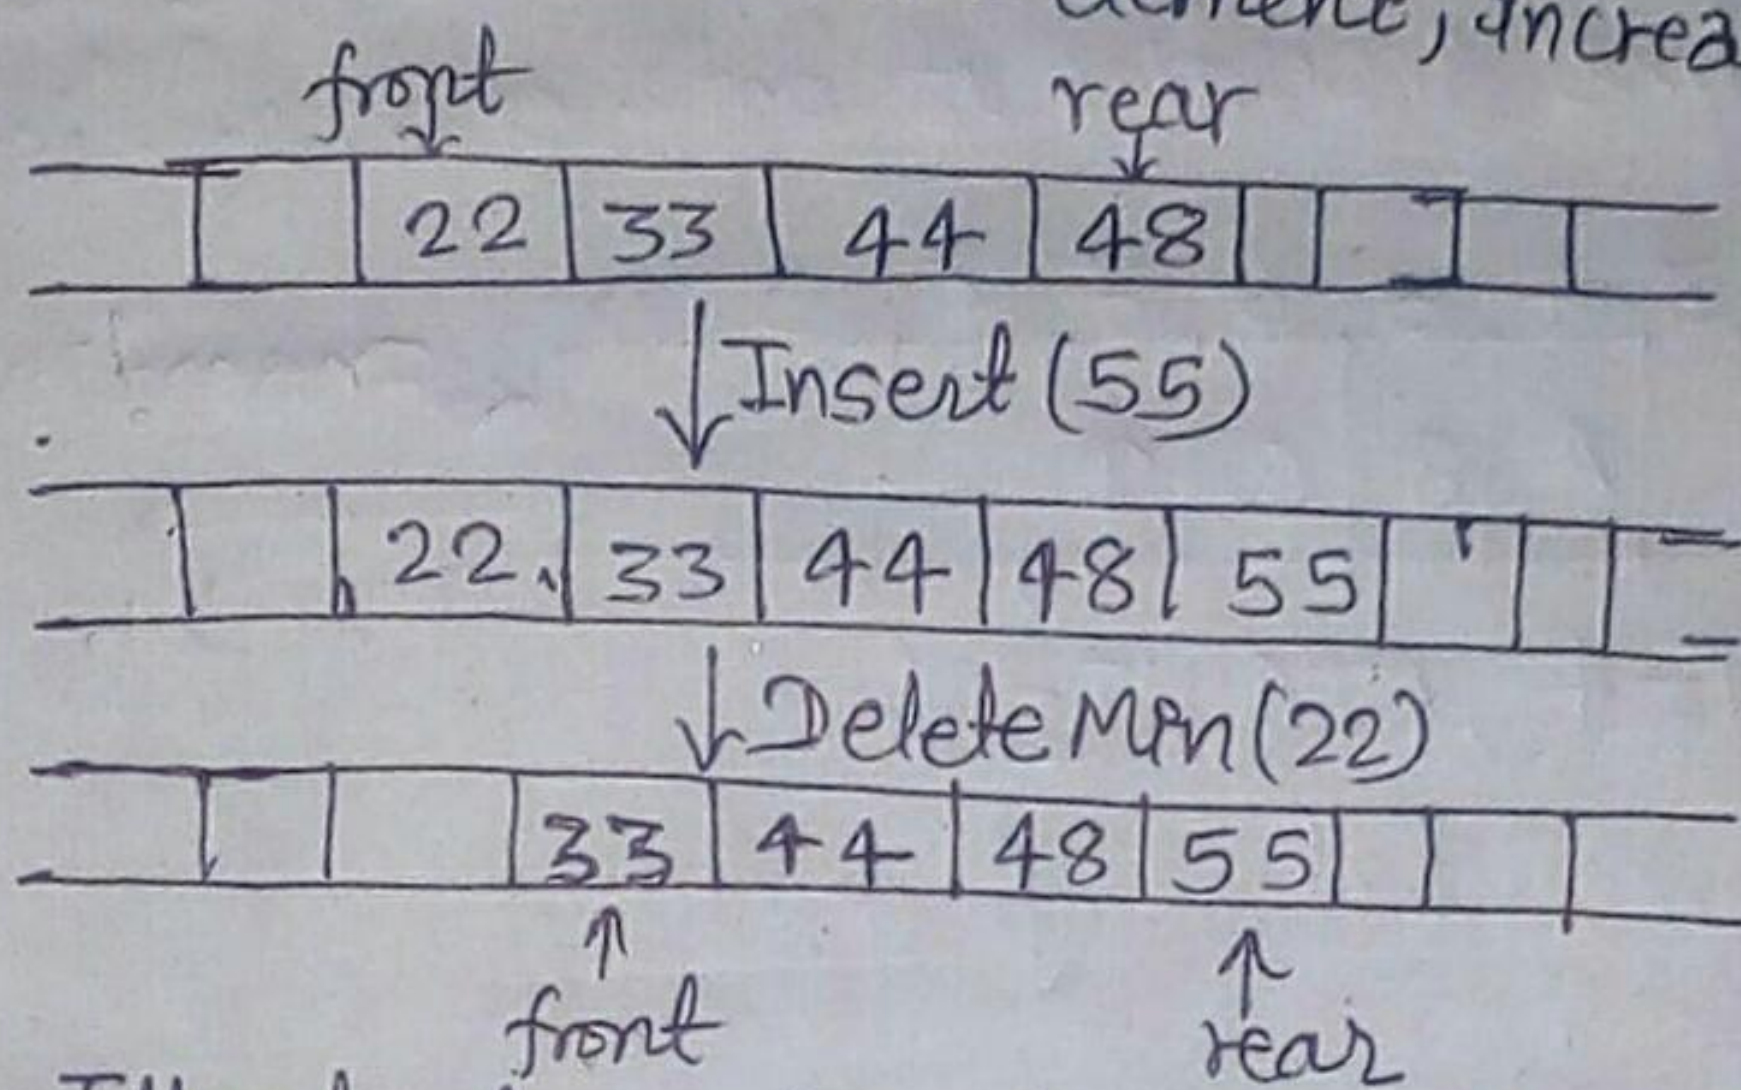 , increa
front rear
22 33 44 48
Insert (55)
22 33 44 48 55
Delete Min (22)
33 44 48 55
front rear